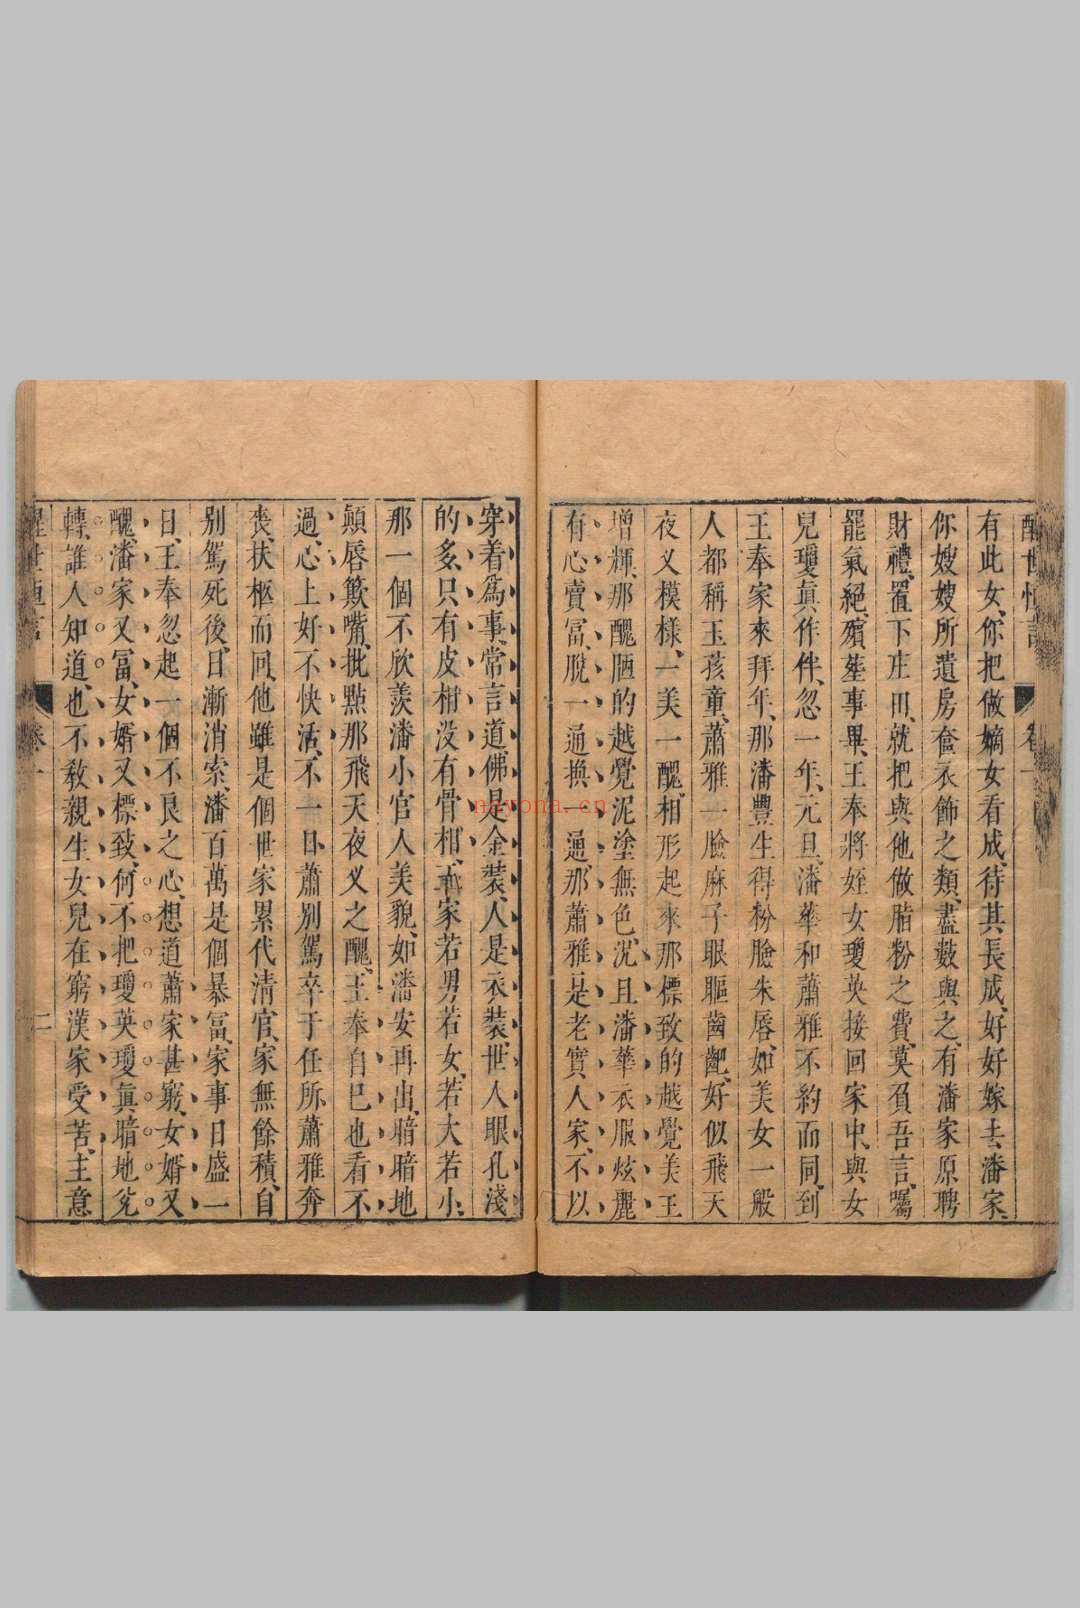 醒世恒言 卷一
有此女、你把做嫡女看成、待其長成、好好嫁去潘家、
你嫂嫂所遺房奩衣飾之類、盡數與之、有潘家原聘
財禮、置下庄田、就把與他做脂粉之費、莫負吾言、囑
罷氣絕、殯葬事畢、王奉將姪女瓊英接回家中、與女
兒瓊眞作伴、忽一年元旦、潘華和蕭雅不約而同、到
王奉家來拜年、那潘華生得粉臉朱唇、如美女一般、
人都稱玉孩童、蕭雅一臉麻子、眼䁱齒齙、好似飛天
夜叉模樣、一美一醜、相形起來、那標致的越覺美玉
增輝、那醜陋的越覺泥塗無色、况且潘華衣服炫麗、
有心賣冨、脫一通換一通、那蕭雅是老實人家、不以
穿着爲事、常言道、佛是金裝、人是衣裝、世人眼孔淺
的多、只有皮相、没有骨相、王家若男若女、若大若小、
那一個不欣羨潘小官人美貌、如潘安再出、暗暗地
顛唇簸嘴、批點那飛天夜叉之醜、王奉自巳也看不
過、心上好不快活、不一日、蕭別駕卒于任所、蕭雅奔
喪、扶柩而囘、他雖是個世家、累代清官、家無餘積、自
别駕死後、日漸消索、潘百萬是個暴冨、家事日盛一
日、王奉忽起一個不良之心、想道、蕭家甚窮、女婿又
醜、潘家又冨、女婿又標致、何不把瓊英瓊眞暗地兌
轉、誰人知道、也不敎親生女兒在窮漢家受苦、主意
醒世恒言 卷一 二
nayona.cn